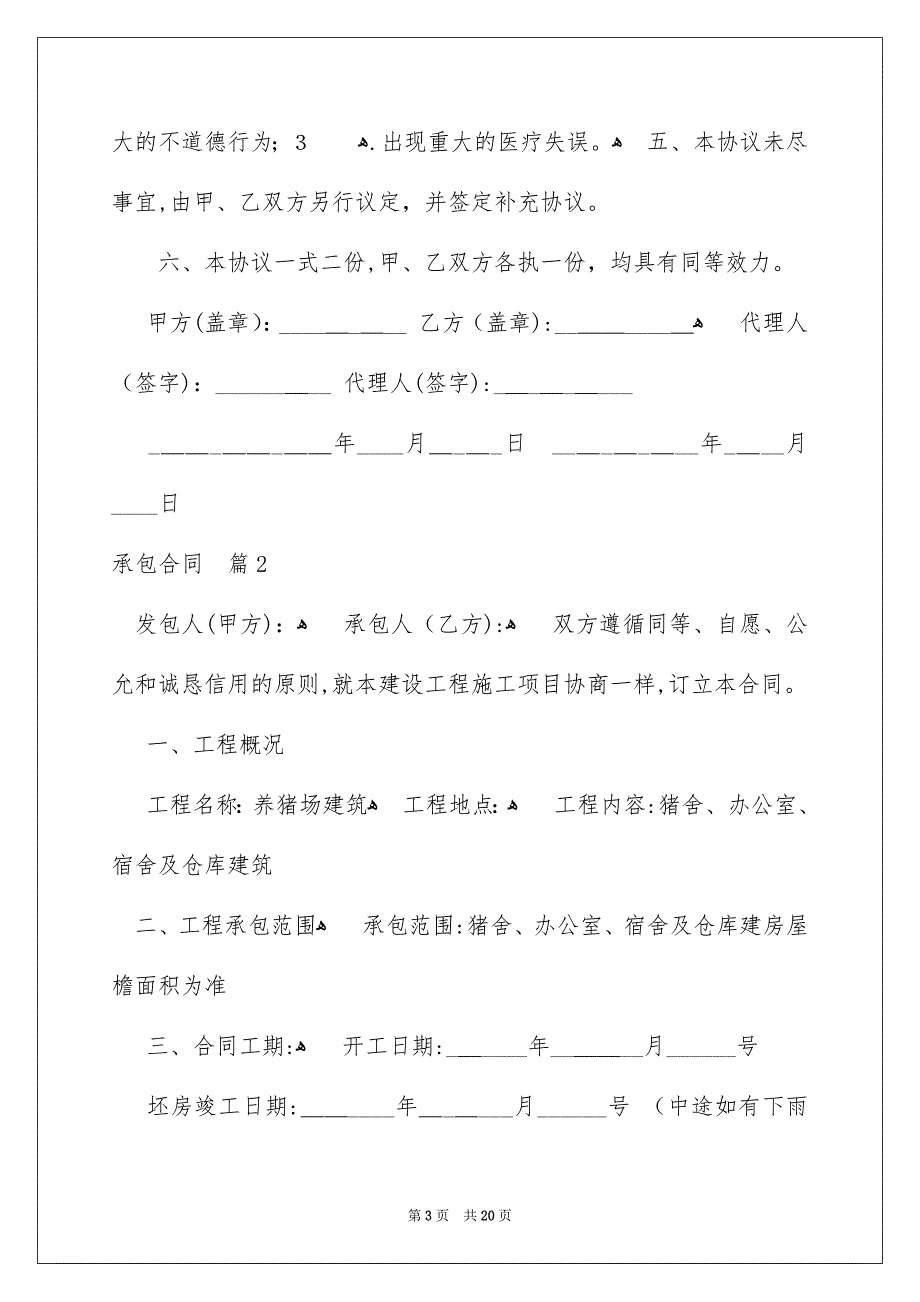 大的不道德行为；3 ﻫ.出现重大的医疗失误。ﻫ 五、本协议未尽
事宜,由甲、乙双方另行议定，并签定补充协议。
六、本协议一式二份,甲、乙双方各执一份，均具有同等效力。
甲方(盖章)：___________ 乙方（盖章):____________ﻫ 代理人
（签字)：__________ 代理人(签字):____________
________________年____月______日 _____________年_____月
____日
承包合同 篇2
发包人(甲方)：ﻫ 承包人（乙方):ﻫ 双方遵循同等、自愿、公
允和诚恳信用的原则,就本建设工程施工项目协商一样,订立本合同。
一、工程概况
工程名称：养猪场建筑ﻫ 工程地点：ﻫ 工程内容:猪舍、办公室、
宿舍及仓库建筑
二、工程承包范围ﻫ 承包范围:猪舍、办公室、宿舍及仓库建房屋
檐面积为准
三、合同工期:ﻫ 开工日期:_______年________月______号
坯房竣工日期:________年________月______号 （中途如有下雨
第3页 共20页